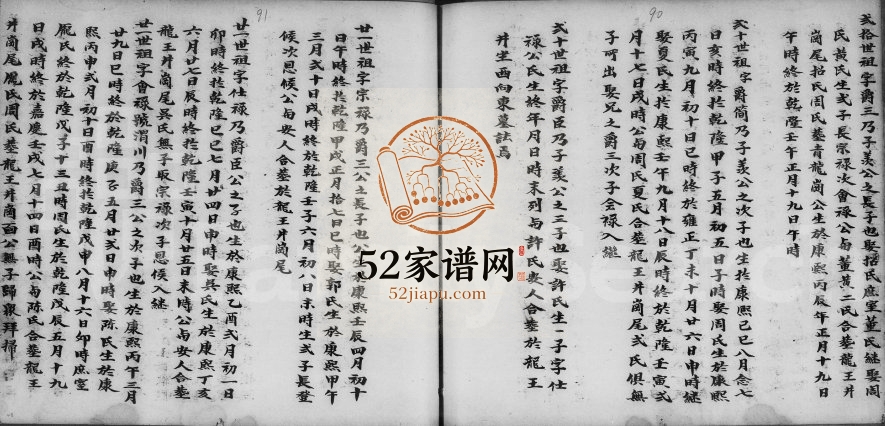 90
弍拾世祖字爵三乃子羲公之長子也娶招氏庶室董氏繼娶周
氏黄氏生弍子長宗禄次會禄公與董黄二氏合塟龍王井
崗尾招氏周氏塟青龍崗公生於康熙丙辰年正月十九日
午時終於乾隆壬午正月十九日午時
弍十世祖字爵簡乃子羲公之次子也生於康熙己巳八月念七
日亥時終於乾隆甲子五月初五日子時娶周氏生於康熙
丙寅九月初十日巳時終於雍正丁未十月廿六日申時繼
娶夏氏生於康熙壬午九月十八日辰時終於乾隆壬寅弍
月十七日戌時公與周氏夏氏合塟龍王井崗尾弍氏俱無
子所出娶兄之爵三次子會禄入繼
弍十世祖字爵臣乃子羲公之三子也娶許氏生一子字仕
禄公氏生終年月日時未列與許氏安人合塟於龍王
井坐西向東墓誌焉
91
廿一世祖字宗禄乃爵三公之長子也公康熙壬辰四月初十
日午時終於乾隆甲戌正月拾七日巳時娶郭氏生於康熙甲午
三月弍十日戌時終於乾隆壬子六月初八日未時生弍子長登
候次恩候公與安人合塟於龍王井崗尾
廿一世祖字仕禄乃爵臣公之子也生於康熙乙酉弍月初一日
卯時終於乾隆己巳七月廿四日申時娶吳氏生於康熙丁亥
六月廿七日辰時終於乾隆壬寅十月廿五日未時公與安人合塟
龍王井崗尾吳氏無子取宗禄次子恩候入繼
廿一世祖字會禄號渭川乃爵三公之次子也生於康熙丙午三月
廿九日巳時終於乾隆庚子五月廿弍日申時娶陈氏生於康
熙丙申弍月初十日酉時終於乾隆戊申八月十六日卯時庶室
龎氏終於乾隆戊子十三丑時周氏生於乾隆戊辰五月十九
日戌時終於嘉慶壬戌七月十四日酉時公與陈氏合塟龍王
井崗尾龎氏周氏塟龍王井崗面公無子歸衆拜掃
52家谱网
52jiapu.com